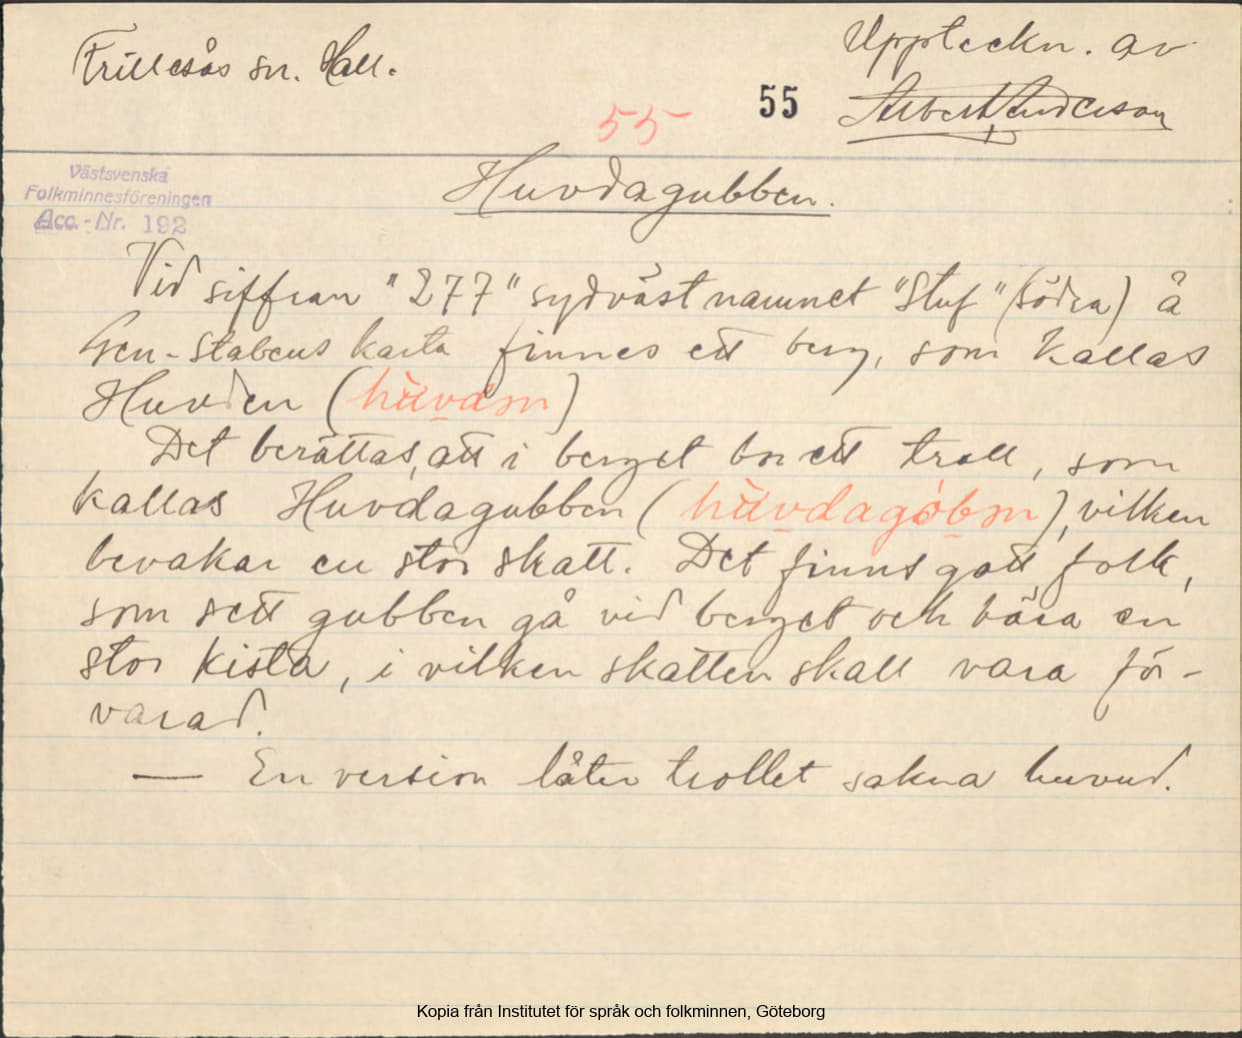 Frillesås sn. Hall.
Uppteckn. av
55
55
Albert Anderson
Västsvenska
Folkminnesföreningen
Acc.-Nr. 192
Huvdagubben.
Vid siffran "277" sydväst namnet "Stuf" (södra) å
Gen-Stabens karta finnes ett berg, som kallas
Huvden (
Det berättas, att i berget bor ett troll, som
kallas Huvdagubben ( ), vilken
bevakar en stor skatt. Det finns gott folk,
som sett gubben gå vid berget och bära en
stor kista, i vilken skatten skall vara för-
varad.
— En version låter trollet sakna huvud.
Kopia från Institutet för språk och folkminnen, Göteborg